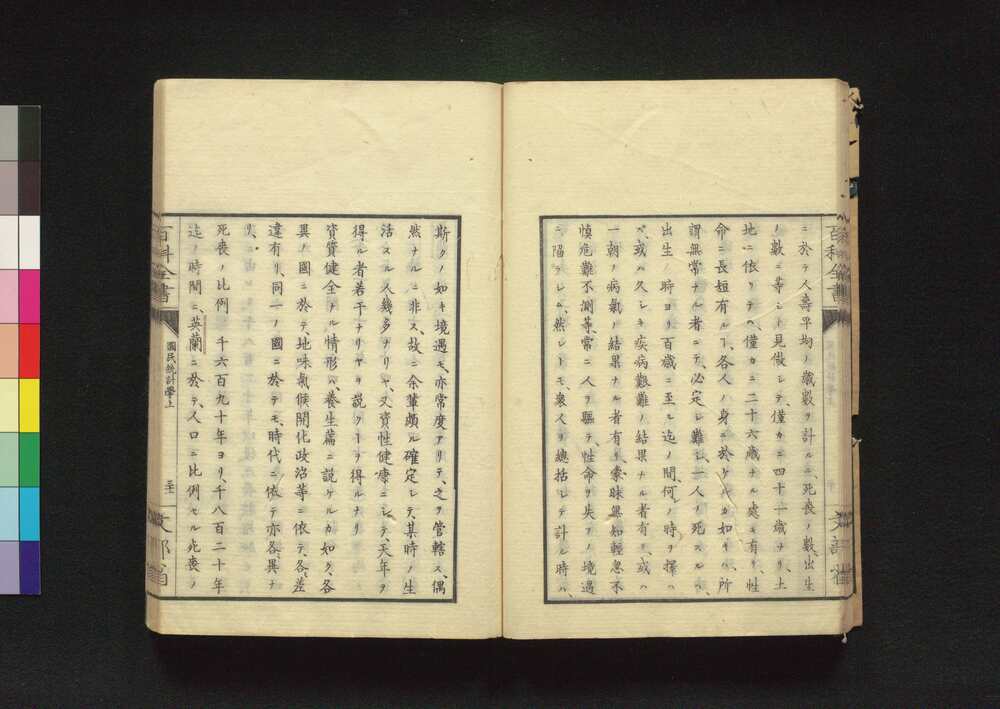 ニ於テ人壽平均ノ歳數ヲ計ルニ、死喪ノ數、出生
ノ數ニ等シト見做シテ、僅カニ四十一歳ナリ、土
地ニ依リテハ、僅カニ二十六歳ナル處モ有リ、性
命ニ長短有ルヿ、各人ノ身ニ於ケルカ如キハ、所
謂無常ナル者ニテ、必定シ難シ、一人ノ死スルハ、
出生ノ時ヨリ百歳ニ至ル迄ノ間、何ノ時ヲ擇ハ
ス、或ハ久シキ疾病艱難ノ結果ナル者有リ、或ハ
一朝ノ病氣ノ結果ナル者有リ、蒙昧無知輕忽不
慎危難不測等、常ニ人ヲ驅テ、性命ヲ失フノ境遇
ニ陥ラシム、然レトモ、衆人ヲ總括シテ計ル時ハ、
百科全書
文部省
斯クノ如キ境遇モ、亦常度アリテ、之ヲ管轄ス、偶
然ナルニ非ス、故ニ余輩頗ル確定シテ、其時ノ生
活スル人幾多ナリヤ、又資性健康ニシテ、天年ヲ
得ル者若干ナリヤヲ説クヿヲ得ルナリ
資質健全ナル情形ハ、養生篇ニ説ケルカ如ク、各
異ノ國ニ於テ、地味氣候開化政治等ニ依テ、各差
違有リ、同一ノ國ニ於テモ、時代ニ依テ亦各異ナ
リ、
死喪ノ比例 千六百九十年ヨリ、千八百二十年
迄ノ時間ニ、英蘭ニ於テ、人口ニ比例セル死喪ノ
百科全書
國民統計學上
文部省